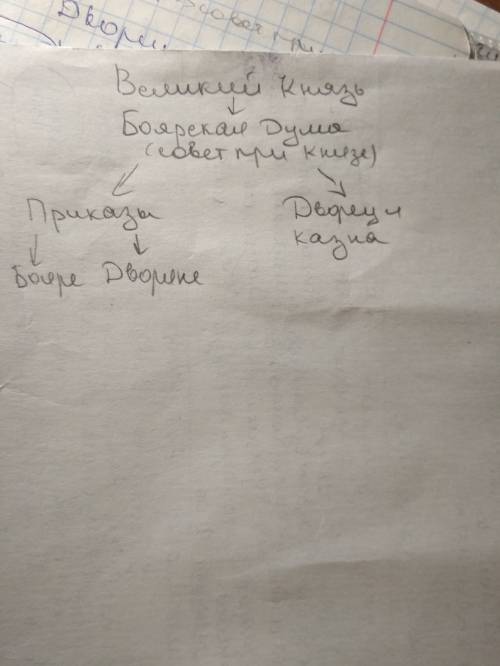 Двореу
совет при
Великий Князь
Боярская Дума
(совет при князе)
Приказы
Дворец и
казна
Бояре Дворяне